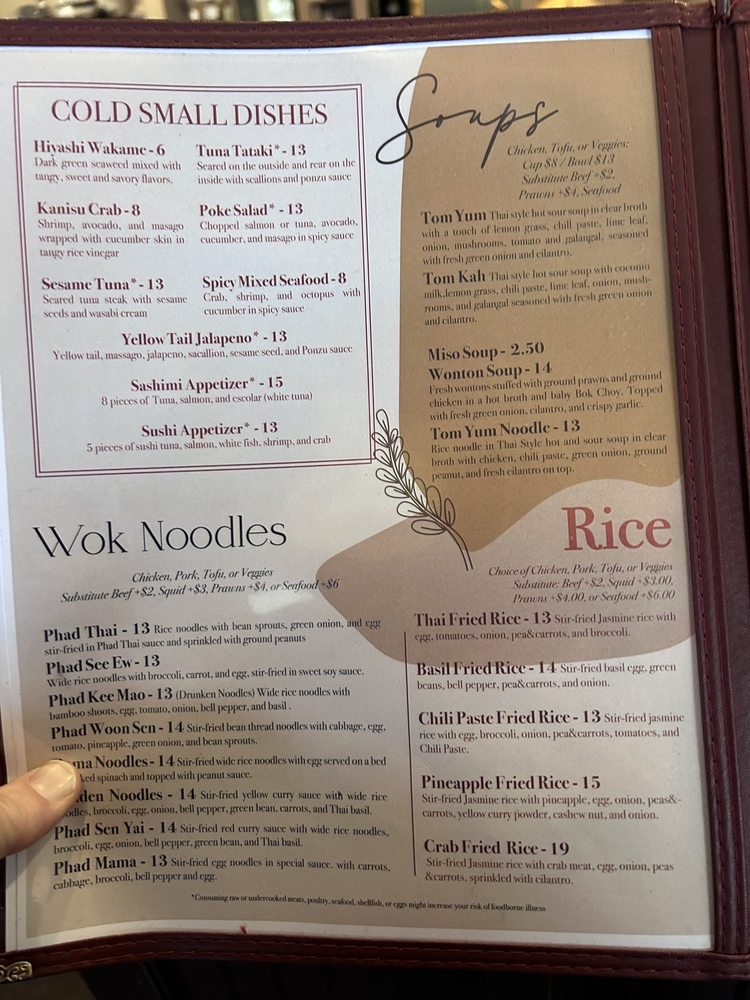 COLD SMALL DISHES
Hiyashi Wakame - 6
Dark green seaweed mixed with
tangy, sweet and savory flavors.
Tuna Tataki* - 13
Seared on the outside and rear on the
inside with scallions and ponzu sauce
Kanisu Crab - 8
Shrimp, avocado, and masago
wrapped with cucumber skin in
tangy rice vinegar
Poke Salad* - 13
Chopped salmon or tuna, avocado,
cucumber, and masago in spicy sauce
Sesame Tuna* - 13
Seared tuna steak with sesame
seeds and wasabi cream
Spicy Mixed Seafood - 8
Crab, shrimp, and octopus with
cucumber in spicy sauce
Yellow Tail Jalapeno* - 13
Yellow tail, massago, jalapeno, sacallion, sesame seed, and Ponzu sauce
Sashimi Appetizer* - 15
8 pieces of Tuna, salmon, and escolar (white tuna)
Sushi Appetizer* - 13
5 pieces of sushi tuna, salmon, white fish, shrimp, and crab
Soups
Chicken, Tofu, or Veggies:
Cup $8 / Bowl $13
Substitute Beef +$2,
Prawns +$4, Seafood
Tom Yum Thai style hot sour soup in clear broth
with a touch of lemon grass, chill paste, lime leaf,
onion, mushrooms, tomato and galangal, seasoned
with fresh green onion and cilantro.
Tom Kah Thai style hot sour soup with coconut
milk,lemon grass, chili paste, lime leaf, onion, mush-
rooms, and galangal seasoned with fresh green onion
and cilantro.
Miso Soup - 2.50
Wonton Soup - 14
Fresh wontons stuffed with ground prawns and ground
chicken in a hot broth and baby Bok Choy. Topped
with fresh green onion, cilantro, and crispy garlic.
Tom Yum Noodle - 13
Rice noodle in Thai Style hot and sour soup in clear
broth with chicken, chili paste, green onion, ground
peanut, and fresh cilantro on top.
Wok Noodles
Chicken, Pork, Tofu, or Veggies
Substitute Beef +$2, Squid +$3, Prawns +$4, or Seafood +$6
Phad Thai - 13 Rice noodles with bean sprouts, green onion, and egg
stir-fried in Phad Thai sauce and sprinkled with ground peanuts
Phad See Ew - 13
Wide rice noodles with broccoli, carrot, and egg, stir-fried in sweet soy sauce.
Phad Kee Mao - 13 (Drunken Noodles) Wide rice noodles with
bamboo shoots, egg, tomato, onion, bell pepper, and basil .
Phad Woon Sen - 14 Stir-fried bean thread noodles with cabbage, egg,
tomato, pineapple, green onion, and bean sprouts.
Noodles - 14 Stir-fried wide rice noodles with egg served on a bed
spinach and topped with peanut sauce.
Noodles - 14 Stir-fried yellow curry sauce with wide rice
noodles, broccoli, egg, onion, bell pepper, green bean, carrots, and Thai basil.
Phad Sen Yai - 14 Stir-fried red curry sauce with wide rice noodles,
broccoli, egg, onion, bell pepper, green bean, and Thai basil.
Phad Mama - 13 Stir-fried egg noodles in special sauce. with carrots,
cabbage, broccoli, bell pepper and egg.
Rice
Choice of Chicken, Pork, Tofu, or Veggies
Substitute: Beef +$2, Squid +$3.00,
Prawns +$4.00, or Seafood +$6.00
Thai Fried Rice - 13 Stir-fried Jasmine rice with
egg, tomatoes, onion, pea&carrots, and broccoli.
Basil Fried Rice - 14 Stir-fried basil egg, green
beans, bell pepper, pea&carrots, and onion.
Chili Paste Fried Rice - 13 Stir-fried jasmine
rice with egg, broccoli, onion, pea&carrots, tomatoes, and
Chili Paste.
Pineapple Fried Rice - 15
Stir-fried Jasmine rice with pineapple, egg, onion, peas&-
carrots, yellow curry powder, cashew nut, and onion.
Crab Fried Rice - 19
Stir-fried Jasmine rice with crab meat, egg, onion, peas
&carrots, sprinkled with cilantro.
*Consuming raw or undercooked meats, poultry, seafood, shellfish, or eggs might increase your risk of foodborne illness